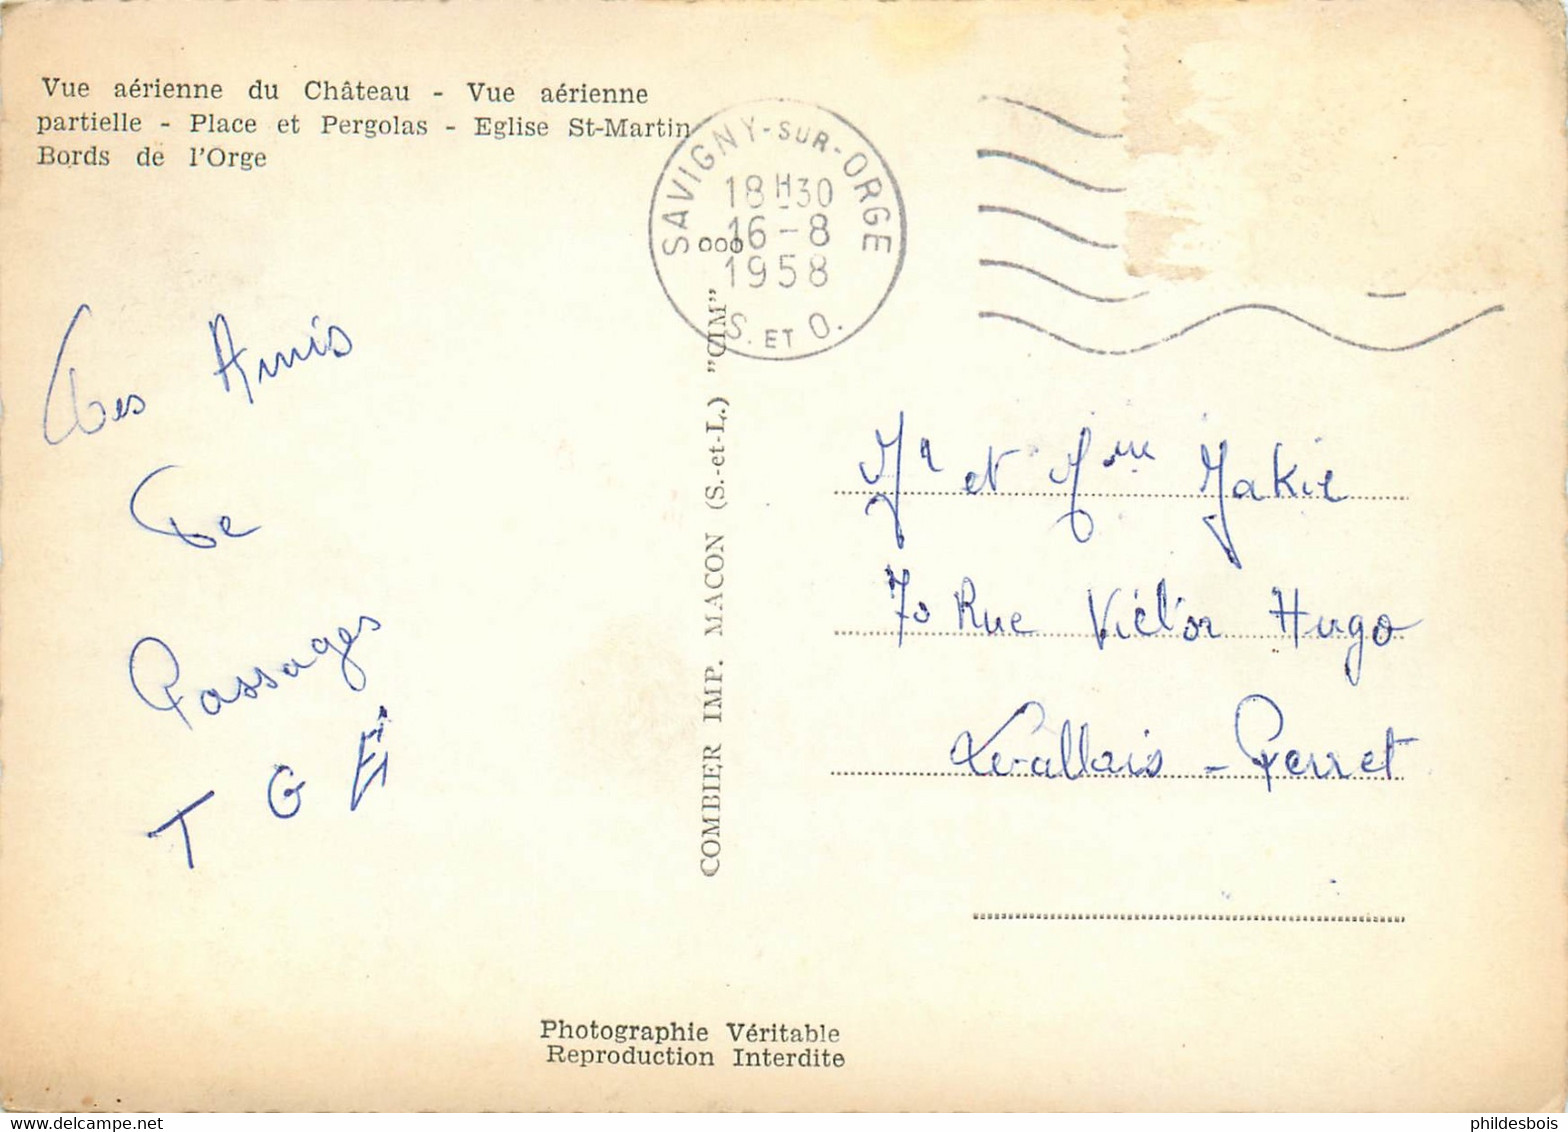 Vue aérienne du Château - Vue aérienne
partielle - Place et Pergolas - Eglise St-Martin
Bords de l'Orge
SAVIGNY-SUR-ORGE
18H30
16-8
1958
S. ET O.
ooo
COMBIER IMP. MACON (S.-et-L.) "CIM"
Des Amis
De
Passages
T G E
Mr et Mme Jakie
70 Rue Victor Hugo
Levallois - Perret
Photographie Véritable
Reproduction Interdite
phildesbois